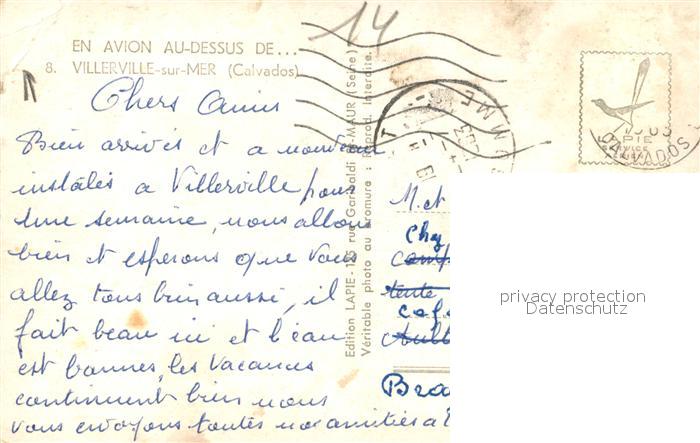 14
EN AVION AU-DESSUS DE...
8. VILLERVILLE-sur-MER (Calvados)
Chers Amis
Bien arrivés et a nouveau
instalés a Villerville pour
une semaine, nous allons
bien et esperons que vous
allez tous bien aussi, il
fait beau ici et l'eau
est bonnes, les vacances
continuent bien nous
vous envoyons toutes nos amitiés a
Edition LAPIE - rue Garibaldi MAUR (Seine)
Véritable photo au bromure : Reprod. interdite.
LAPIE
SERVICE
AÉRIEN
CALVADOS
M. et
Chez
tente
Bra
privacy protection
Datenschutz